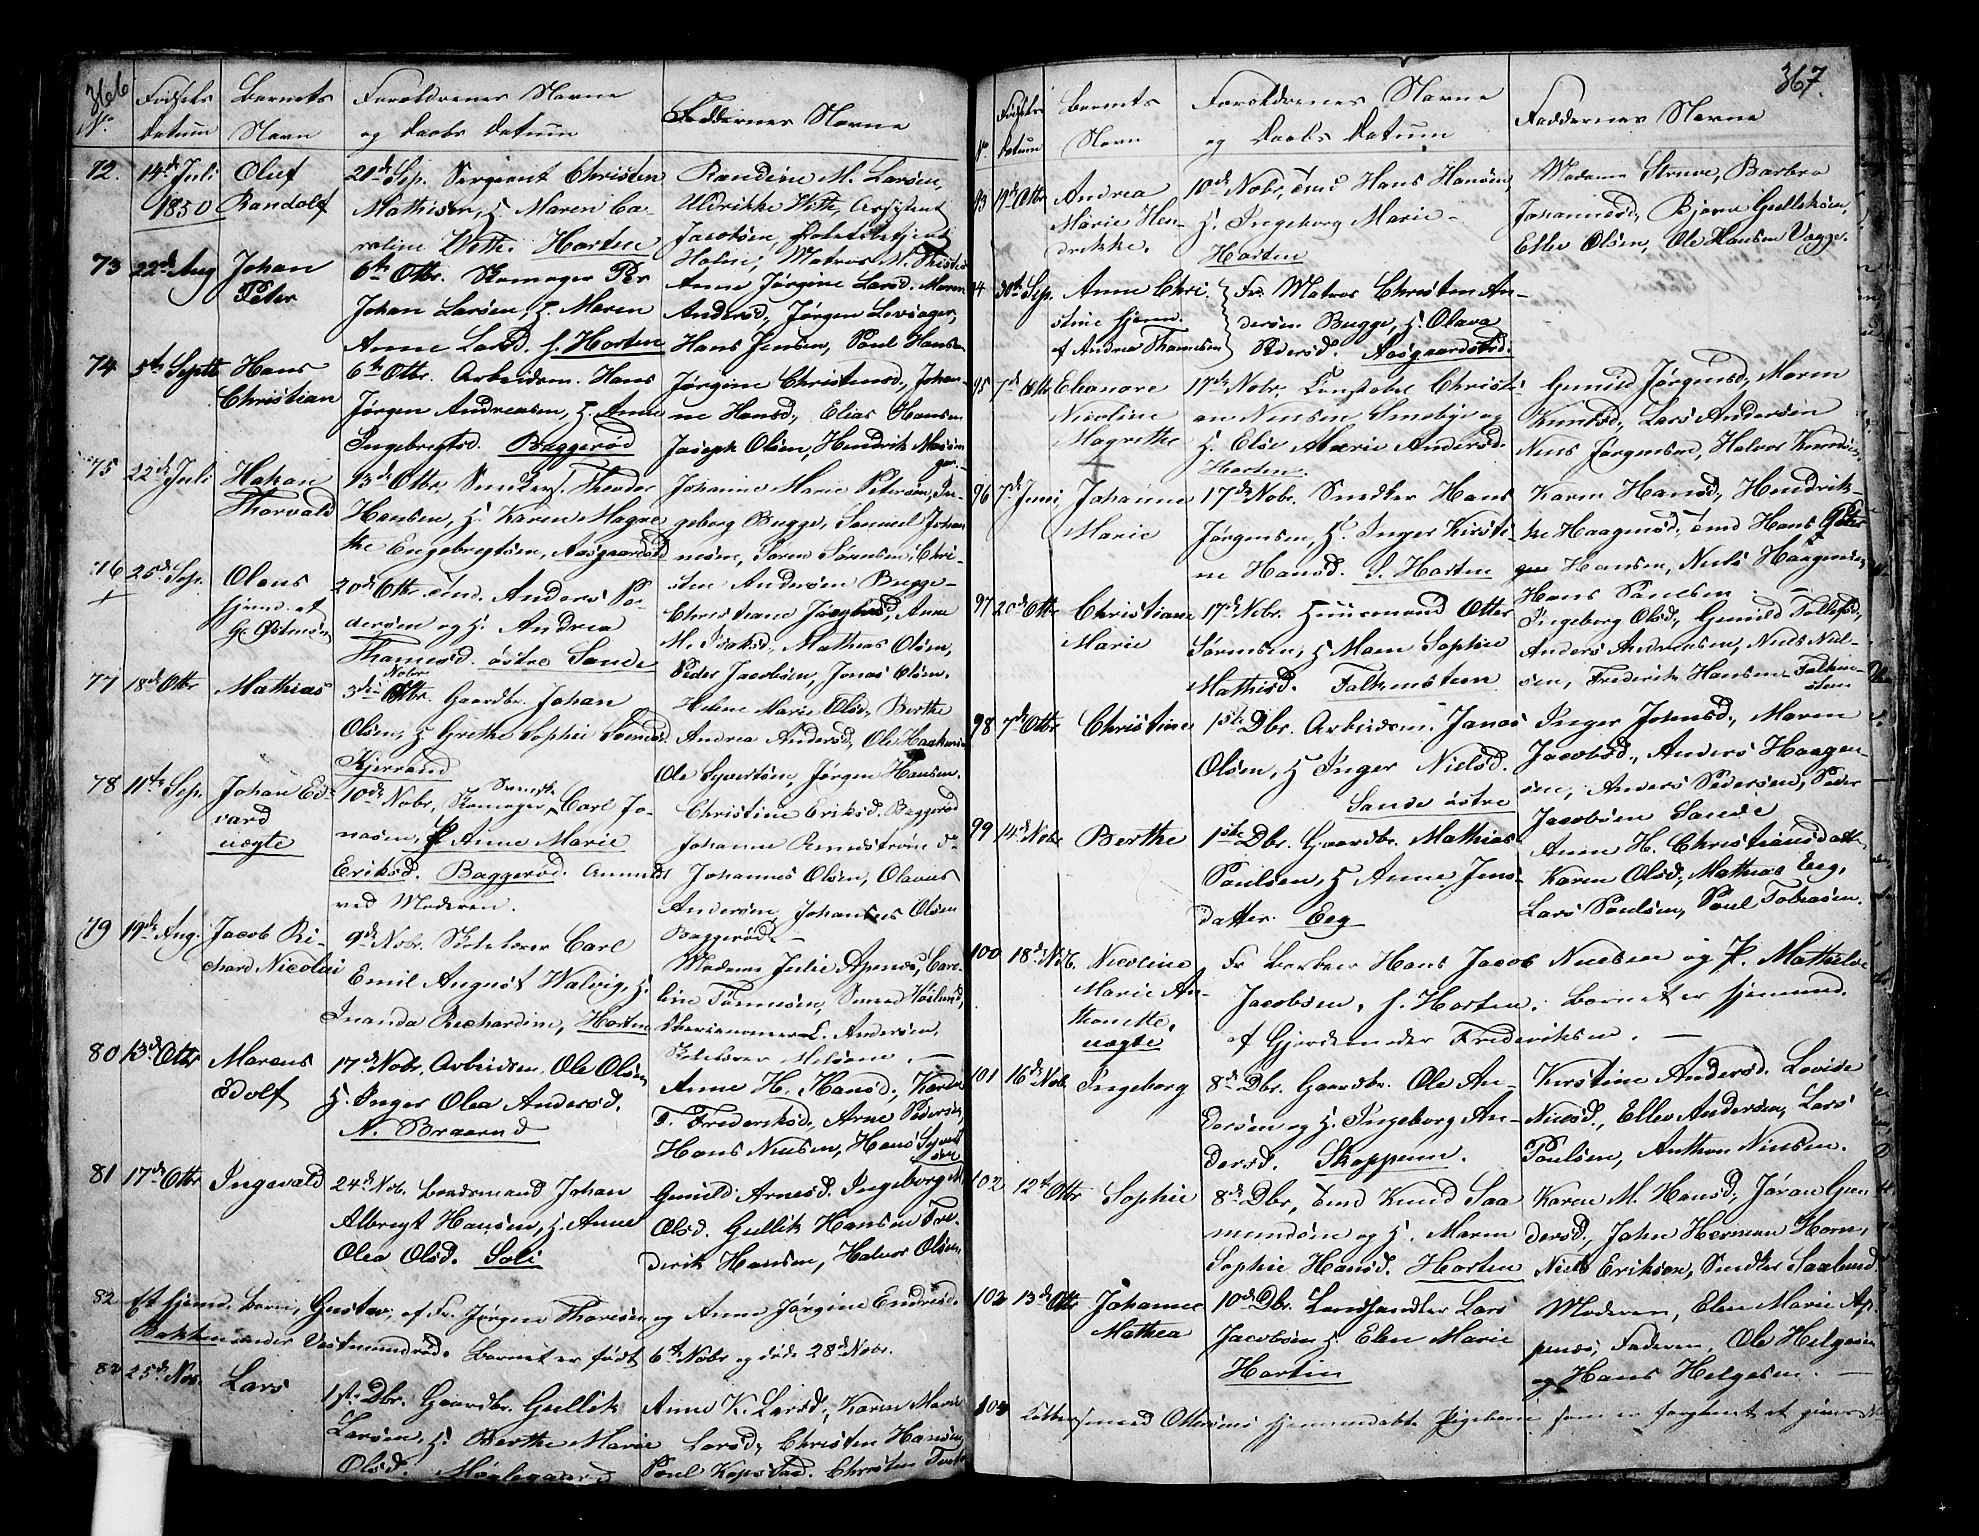 366
No Fødsels Datum
Barnets Navn
Foreldrenes Navne og Daabs Datum
Faddernes Navne
72. 14de Juli 1850 Oluf Randolf
21de Sep. Sergeant Christen
Mathisen, H. Maren Ca-
roline With. Horten
Randine M. Larsen,
Uldrikke With, Assistent
Jacobsen, Politibetjent
Holm, Matros M.
73 22de Aug Johan Peter
6te Otbr. Skomager Per
Johan Larsen, H. Maren
Anne Larsd. f. Horten
Anne Jørgine Larsd. Maren
Andersd., Jørgen Levsager,
Hans Jensen, Poul Hansen
74 5te Septb Hans Christian
6te Otbr. Arbeidsm. Hans
Jørgen Andreasen, H. Anne
Ingebregtsd. Baggerød
Jørgine Christensd., Johan-
ne Hansd., Elias Hansen
Joseph Olsen, Hendrik
75 22de Juli Hakan Thorvald
13de Otbr. Theodor
Hansen, H. Karen Magre
the Engebregtsen, Aasgaardstd
Johanne Marie Petersen, In-
geborg Bugge, Samuel Johan
nesen, Søren Sørensen, Chri-
sten Andersen Bugge -
76 25de Sep. Olaus
hjemd. af
G. Østmoen
20de Otbr. Tmd. Anders Pe-
dersen og H. Andrea
Thamesd. østre Sande
Christiane Jacobsd, Anne
M. Isaksd., Mathias Olsen,
Peder Jacobsen, Jonas Olsen.
77 18de Otbr Mathias
3die Nobr Gaardbr. Johan
Olsen, H Grethe Sophie
Kjerrand
Helene Marie Olsd., Berthe
Andrea Andersd, Ole Haakensen
Ole Syvertsen, Jørgen Hansen.
78 11te Sep. Johan Ed-
vard
uægte
10de Nobr, Skomager Svend Carl Jo-
nasen, P. Anne Marie
Eriksd. Baggerød. Anmeldt
ved Moderen.
Christine Eriksd. Baggerød
Johanne
Johannes Olsen, Olaves
Andersen, Johannes Olsen
Baggerød. -
79 19de Aug. Jacob Ri-
chard Nicolai
9de Nobr. Skolelærer Carl
Emil August Walvig, H.
Inanda Richardine, Horten
Madame Julie Apenæs, Caro-
line Tønnesen,
L. Andersen.
Skolelærer Nilsen. -
80 13de Otbr Marcus
Edolf
17de Nobr. Arbeidsm. Ole Olsen
H. Inger Olea Andersd.
N. Braarud
Anne H. Hansd., Karen
T. Frederiksd., Arne Pedersen,
Hans Nielsen, Hans Syvert
sen
81 17de Otbr Ingevald
24de Nob. Johan
Albregt Hansen, H. Anne
Olea Olsd. Soli
Gunild Arnesd. Ingeborg M
Olsd. Gullik Hansen Fre-
derik Hansen, Halvor Olsen,
82 Et hjemd. Barn, Gustav, af Fr. Jørgen Thoresen og Anne Jørgine Endresd.
Bakken under Vestmundrød. Barnet er født 6te Nobr og døde 28de Nobr.
83 25de Nov. Lars
1ste Dbr. Gaardbr. Gullik
Larsen, H. Berthe Marie
Olsd. Møglegaard
Anne K. Larsd., Karen Marie
Larsd, Christen Hansen,
Poul Kopstad. Christen
367.
No Fødsels Datum
Barnets Navn
Foreldrenes Navne og Daabs Datum
Faddernes Navne
93 19de Otbr Andrea
Marie Hen-
drikke.
10de Nobr, Tmd Hans Hansen,
H. Ingeborg Marie -
Horten
Madame Struve, Barbro
Johannesd, Bjørn Gulliksen,
Ellev Olsen, Ole Hansen Vagge.
94 30te Sep. Anne Chri
stine hjem.
af Andrea Thamesen
Fr. Matros Christen An-
dersen Bugge, H. Olava
Pedersd. Aasgaardstrd.
95 7de Otbr Eleanore
Nicoline
Magrethe
17de Nobr. Konstabel Christi-
an Nielsen Smebye og
H. Else Marie Andersd.
Horten.
Gunild Jørgensd, Maren
Knudsd, Lars Andersen
Niels Jørgensen, Halvor
96 7de Juni Johanne
Marie
17de Nobr. Snedker Hans
Jørgensen, H. Inger Kirsti-
ne Hansd. f. Horten
Karen Hansd, Hendrik-
ke Haagensd, Tmd Hans
Hansen, Niels Haagensen
Hans Poulsen -
97 20de Otbr Christiane
Marie
17de Nobr. Huusmand Otter
Sørensen, H Maren Sophie
Mathisd. Falkensteen
Ingeborg Olsd., Gunild Tollefsd,
Anders Andersen, Niels Niel-
sen, Frederik Hansen Falken-
steen
98 7de Otbr Christine
1ste Dbr. Arbeidsm. Jonas
Olsen, H Inger Nielsd.
Sande østre
Inger Johnsd, Maren
Jacobsd., Anders Haagen-
sen, Anders Pedersen, Peder
Jacobsen Sande
99 14de Nobr Berthe
1ste Dbr. Gaardbr. Mathias
Paulsen, H Anne Jens-
datter. Eeg
Anne H. Christiansdatter
Karen Olsd., Mathias Eeg,
Lars Poulsen, Poul Tobiasen.
100 18de Nob. Nicoline
Marie An-
thonette.
uægte
Fr Barber Hans Jacob Nielsen og P. Mathilde
Jacobsen, f. Horten. Barnet er hjemmed.
af Gjordemoder Frederiksen. -
101 16de Nob. Ingeborg
8de Dbr. Gaardbr. Ole An-
dersen og H. Ingeborg An-
dersd. Skoppum.
Kirstine Andersd. Lovise
Nielsd., Ellev Andersen, Lars
Poulsen, Anthon Nielsen.
102 12te Otbr Sophie
8de Dbr, Tmd Knud Saa
mundsen og H. Maren
Sophie Hansd. Horten
Karen M. Hansd, Jøran Gun
dersd., John Herman Horn,
Niels Eriksen, Snedker Saalund.
103 13de Otbr Johanne
Mathea
10de Dbr. Landhandler Lars
Jacobsen H. Elen Marie
Horten
Moderen, Elen Marie Ap-
penæs, Faderen, Ole Helgesen
og Hans Helgesen. -
104 Ottersens hjemmedøbte Pigebarn som er